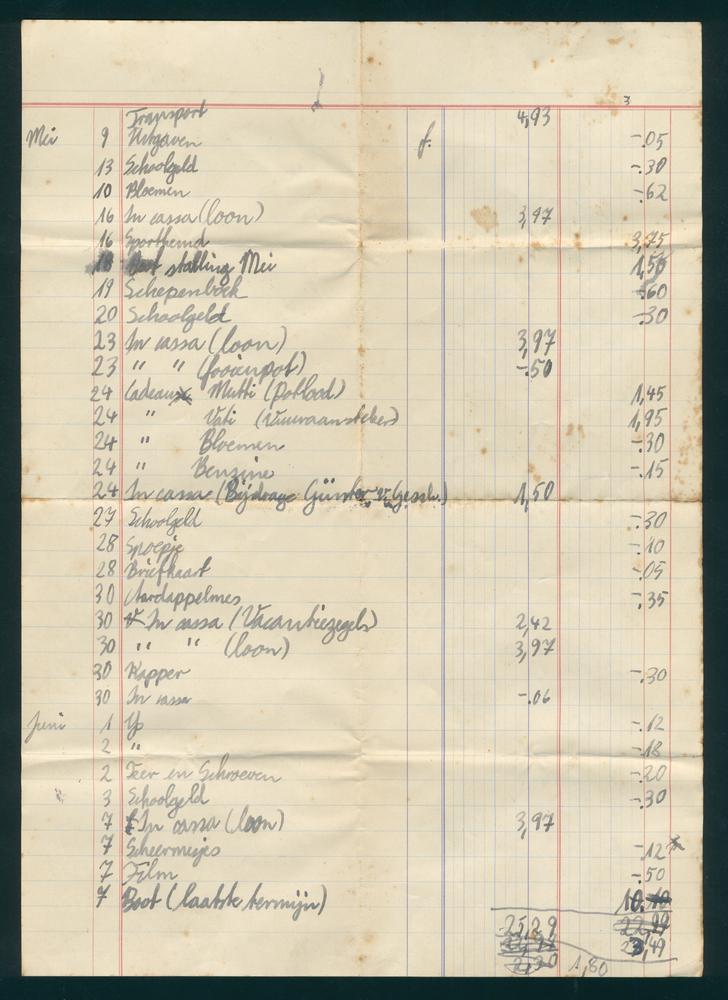 3
Transport 4,93
Mei 9 Uitgaven f. -.05
13 Schoolgeld -.30
10 Bloemen -.62
16 In cassa (loon) 3,97
16 Sporthemd 3,75
18 Boot stalling Mei 1,50
19 Schepenboek -.60
20 Schoolgeld -.30
23 In cassa (loon) 3,97
23 " " (fooienpot) -.50
24 Cadeau Mutti (Potlood) 1,45
24 " Vati (Vuuraansteker) 1,95
24 " Bloemen -.30
24 " Benzine -.15
24 In cassa (Bijdrage Günter 1,50
27 Schoolgeld -.30
28 Snoepje -.10
28 Briefkaart -.05
30 Aardappelmes -.35
30 In cassa (Vacantiezegels) 2,42
30 " " (loon) 3,97
30 Kapper -.30
30 In cassa -.06
Juni 1 IJs -.12
2 " -.18
2 Teer en Schroeven -.20
3 Schoolgeld -.30
7 In cassa (loon) 3,97
7 Scheermesjes -.12 x
7 Film -.50
7 Boot (laatste termijn) 10.
25,29
23,49
1,80